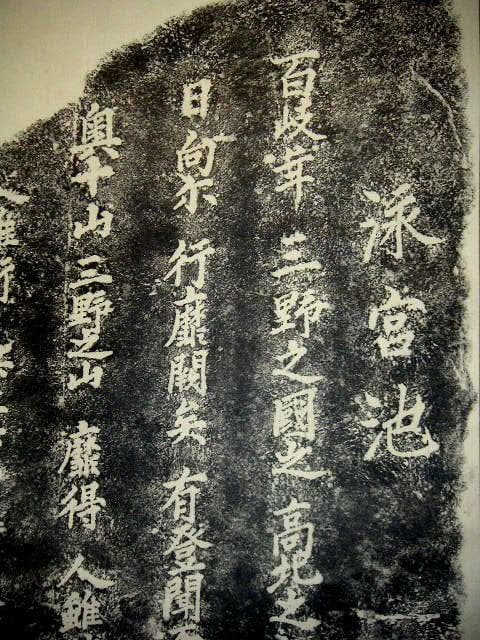 泳宮池
百岐年 三野之國之 高北之
日向尓 行靡闕矣 有登聞
奥十山 三野之山 靡得 人雖